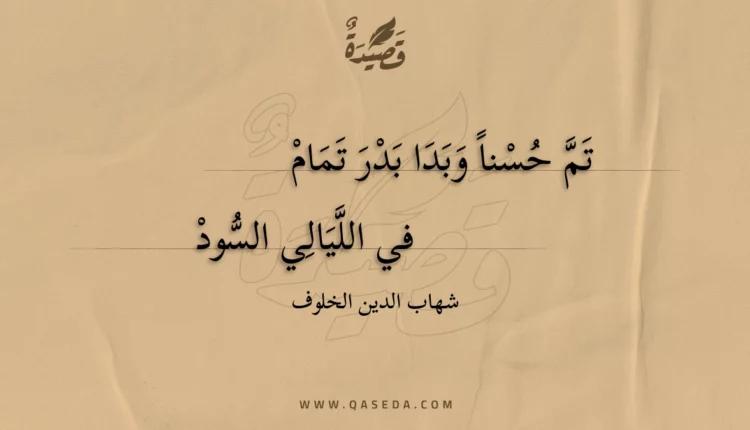 قَصِيدَةٌ
تَمَّ حُسْناً وَبَدَا بَدْرَ تَمَامْ
في اللَّيَالِي السُّودْ
شهاب الدين الخلوف
WWW.QASEDA.COM